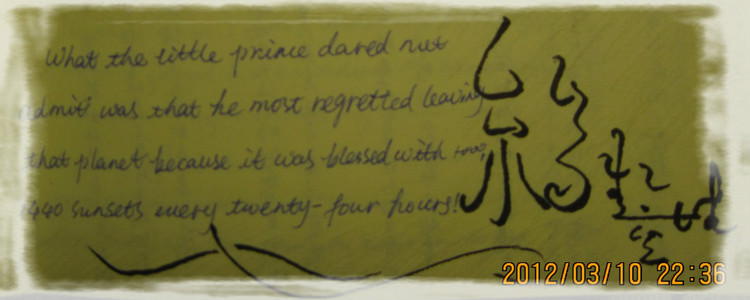 What the little prince dared not
admit was that he most regretted leaving
that planet because it was blessed with
1440 sunsets every twenty-four hours!
2012/03/10 22:36